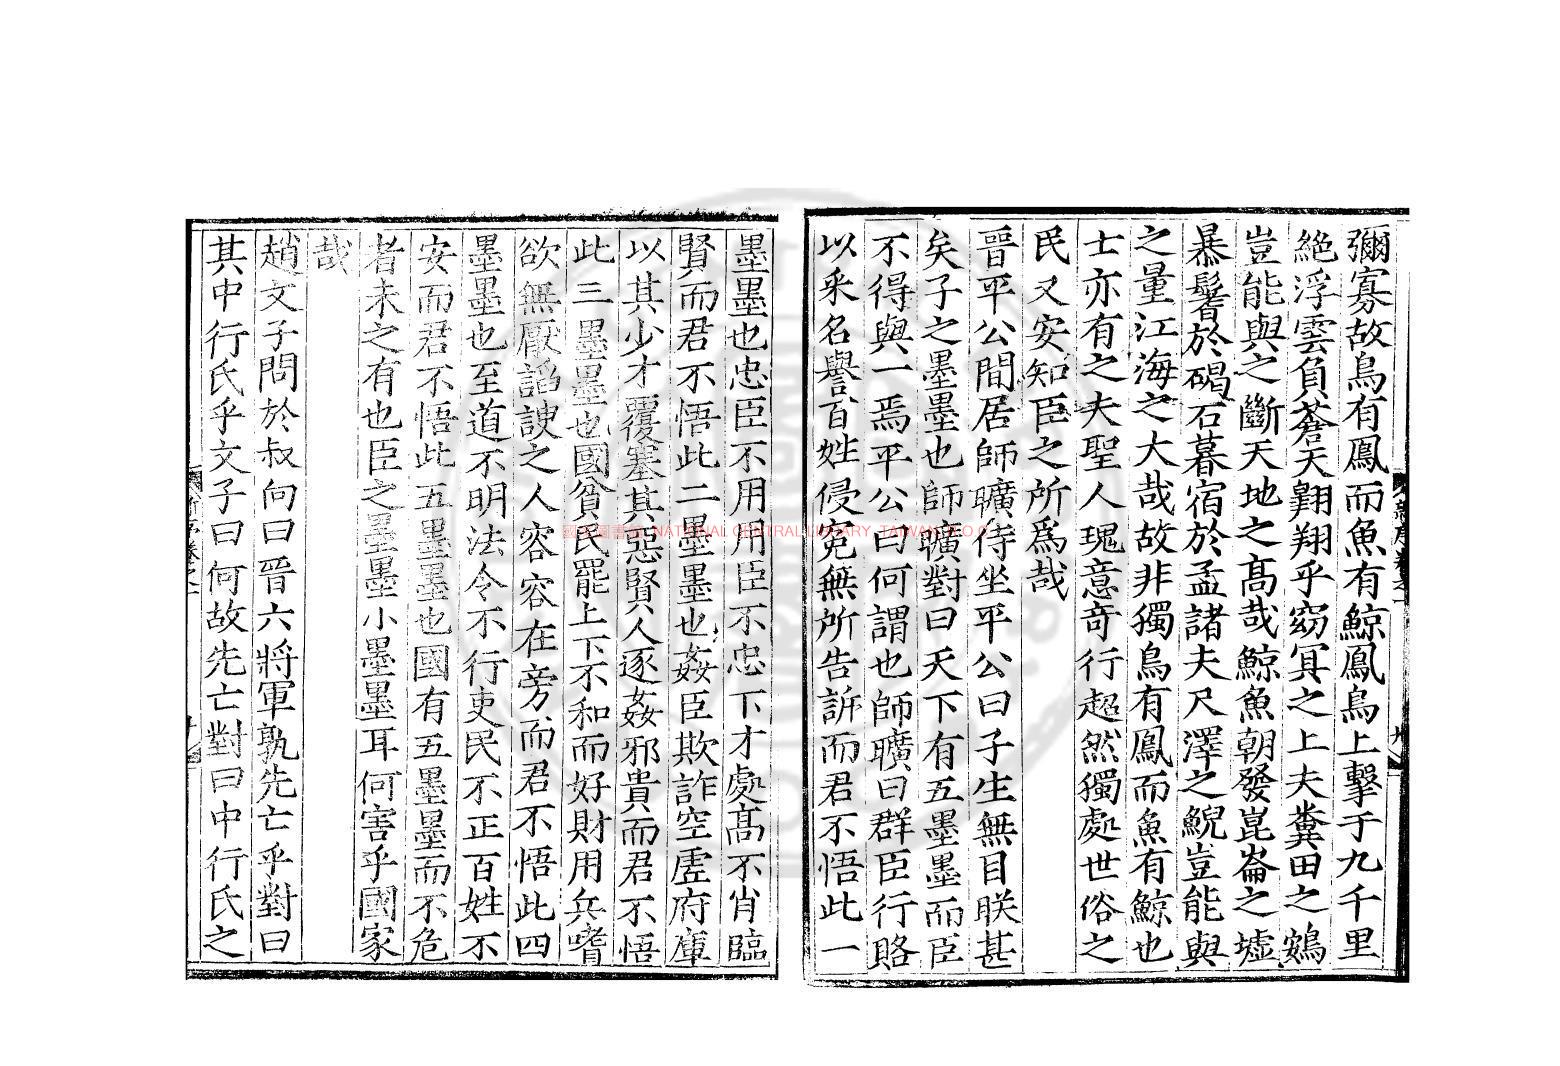 彌寡故鳥有鳳而魚有鯨鳳鳥上擊于九千里
絶浮雲負蒼天翺翔乎窈冥之上夫糞田之鴳
豈能與之斷天地之髙哉鯨魚朝發崑崙之墟
暴鬐於碣石暮宿於孟諸夫尺澤之鯢豈能與
之量江海之大哉故非獨鳥有鳳而魚有鯨也
士亦有之夫聖人瑰意竒行超然獨處世俗之
民又安知臣之所爲哉
晉平公間居師曠侍坐平公曰子生無目眹甚
矣子之墨墨也師曠對曰天下有五墨墨而臣
不得與一焉平公曰何謂也師曠曰群臣行賂
以釆名譽百姓侵寃無所告訴而君不悟此一
墨墨也忠臣不用用臣不忠下才處髙不肖臨
賢而君不悟此二墨墨也姦臣欺詐空虗府庫
以其少才覆塞其惡賢人逐姦邪貴而君不悟
此三墨墨也國貧民罷上下不和而好財用兵嗜
欲無厭謟諛之人容容在旁而君不悟此四
墨墨也至道不明法令不行吏民不正百姓不
安而君不悟此五墨墨也國有五墨墨而不危
者未之有也臣之墨墨小墨墨耳何害乎國家
哉
趙文子問於叔向曰晋六將軍孰先亡乎對曰
其中行氏乎文子曰何故先亡對曰中行氏之
國家圖書館 NATIONAL CENTRAL LIBRARY, TAIWAN, R.O.C